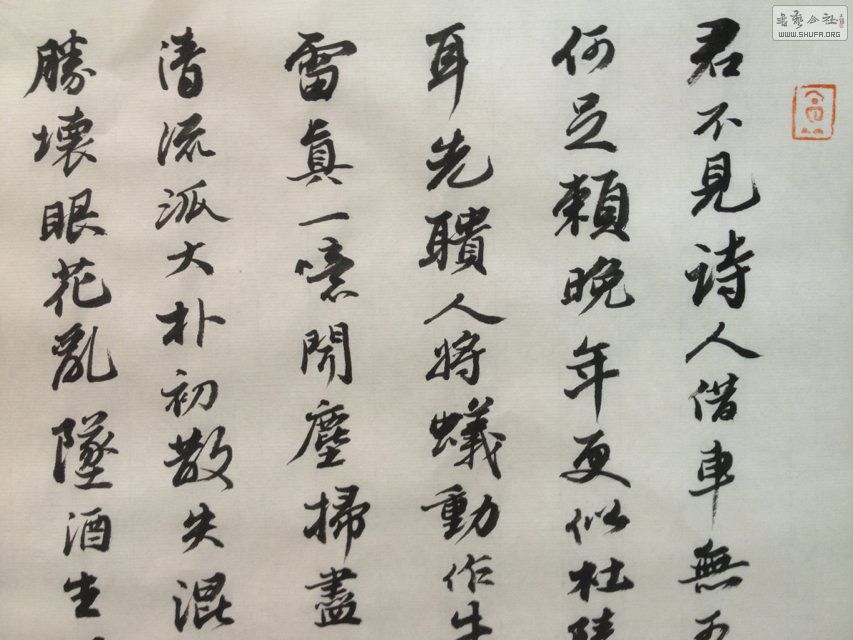 書藝公社
WWW.SHUFA.ORG
君不見诗人借車無
何足賴晚年更似杜陵
耳先聵人將蟻動作牛
雷眞一噫聞塵掃盡
清流派大朴初散失混
勝壞眼花亂墜酒生